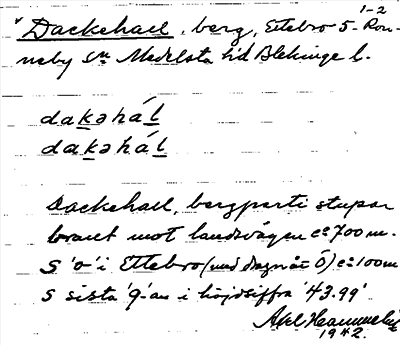 1-2
Dackehall, berg, Ettebro 5 - Ron-
neby sn Medelsta hd Blekinge l.
dakəhál
dakəhál
Dackehall, bergparti stupar
brant mot landsvägen c:a 700 m.
S 'o' i Ettebro (und ) c:a 100 m
S sista 'g'-an i höjdsiffra '43.99'.
Axel
1942.